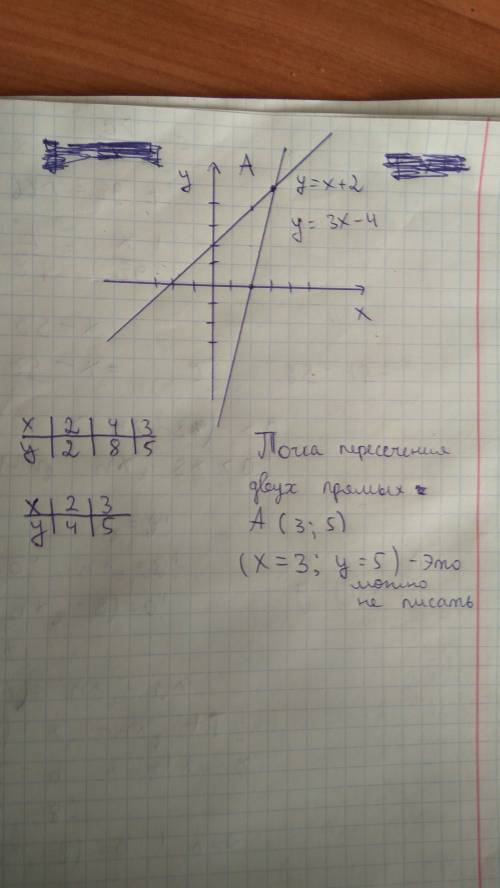 A
y
y = x+2
y = 3x-4
x
x | 2 | 4 | 3
y | 2 | 8 | 5
x | 2 | 3
y | 4 | 5
Точка пересечения
двух прямых -
A (3; 5)
(x = 3; y = 5) - Это
можно
не писать